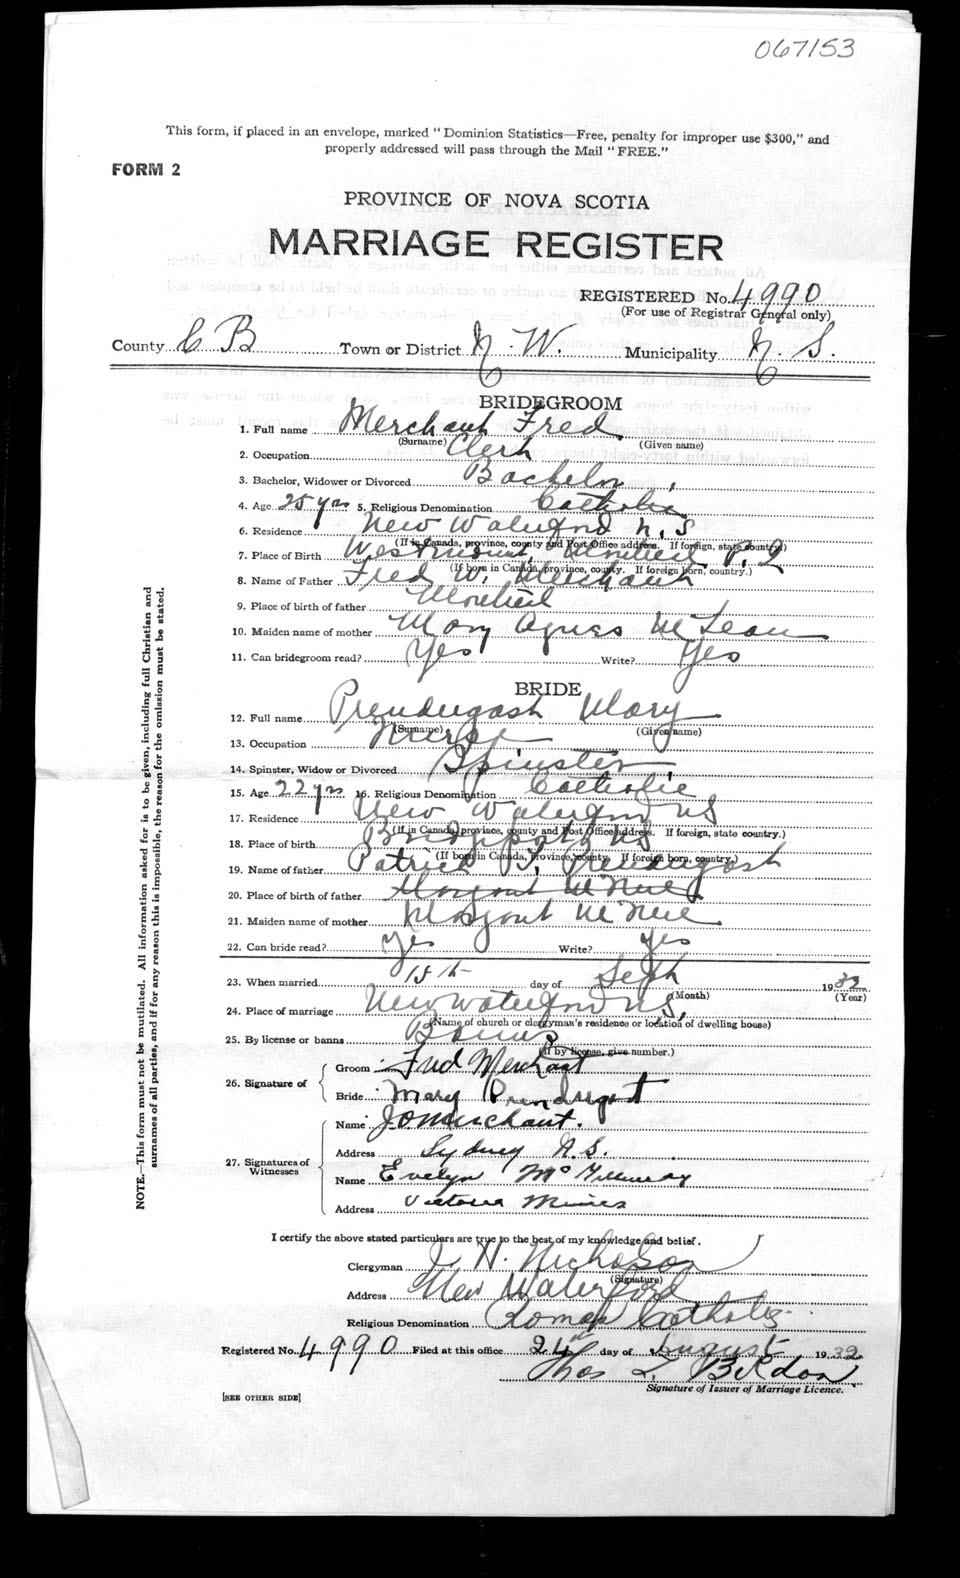 067153
This form, if placed in an envelope, marked "Dominion Statistics—Free, penalty for improper use $300," and
properly addressed will pass through the Mail "FREE."
FORM 2
PROVINCE OF NOVA SCOTIA
MARRIAGE REGISTER
REGISTERED No. 4990
(For use of Registrar General only)
County C B Town or District N. W. Municipality N. S.
BRIDEGROOM
1. Full name Merchant Fred
(Surname) (Given name)
2. Occupation Clerk
3. Bachelor, Widower or Divorced Bachelor
4. Age 25 yrs 5. Religious Denomination Catholic
6. Residence New Waterford N. S
(If in Canada, province, county and Post Office address. If foreign, state country.)
7. Place of Birth Westmount, Montreal P. Q
(If born in Canada, province, county. If foreign born, country.)
8. Name of Father Fred W. Merchant
9. Place of birth of father Montreal
10. Maiden name of mother Mary Agnes McLean
11. Can bridegroom read? Yes Write? Yes
BRIDE
12. Full name Prendergast Mary
(Surname) (Given name)
13. Occupation Nurse
14. Spinster, Widow or Divorced Spinster
15. Age 22 yrs 16. Religious Denomination Catholic
17. Residence New Waterford NS
(If in Canada, province, county and Post Office address. If foreign, state country.)
18. Place of birth Bridgeport NS
(If born in Canada, province, county. If foreign born, country.)
19. Name of father Patrick J. Prendergast
20. Place of birth of father Margaret McNeil
21. Maiden name of mother Margaret McNeil
22. Can bride read? Yes Write? Yes
23. When married 15th day of Sept 1932
(Month) (Year)
24. Place of marriage New Waterford NS,
(Name of church or clergyman's residence or location of dwelling house)
25. By license or banns Banns
(If by license, give number.)
26. Signature of
Groom Fred Merchant
Bride Mary Prendergast
27. Signatures of Witnesses
Name J O Merchant.
Address Sydney N.S.
Name Evelyn
Address Victoria Mines
I certify the above stated particulars are true to the best of my knowledge and belief.
Clergyman J. H. Nicholson
(Signature)
Address New Waterford
Religious Denomination Roman Catholic
Registered No. 4990 Filed at this office 24th day of August 1932
Thos L.
Signature of Issuer of Marriage Licence.
[SEE OTHER SIDE]
NOTE.—This form must not be mutilated. All information asked for is to be given, including full Christian and
surnames of all parties, and if for any reason this is impossible, the reason for the omission must be stated.